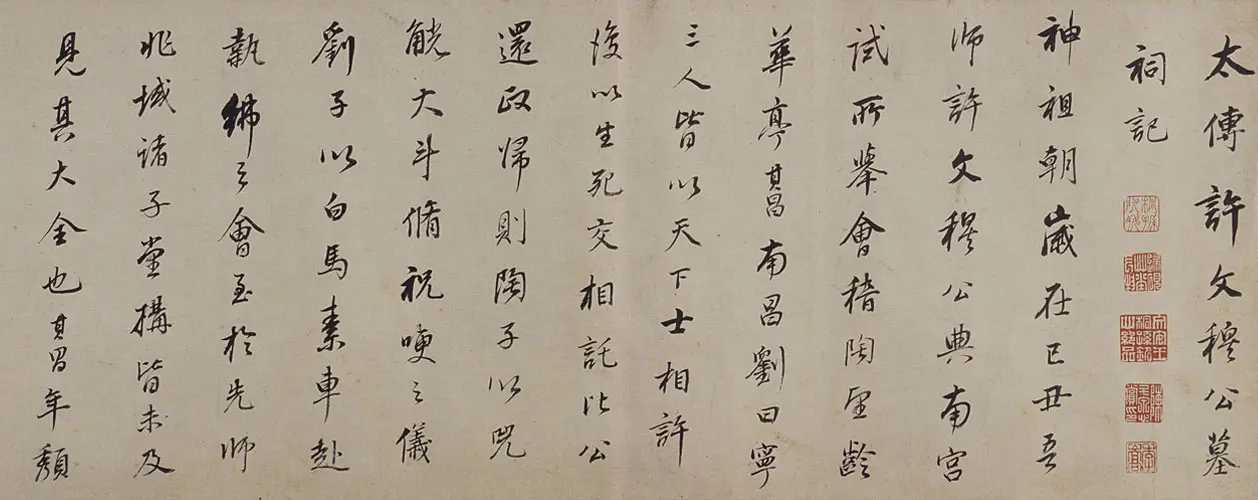 太傅許文穆公墓
祠記
神祖朝歲在己丑吾
師許文穆公典南宮
試所舉會稽陶望齡
華亭其昌南昌劉曰寧
三人皆以天下士相許
後以生死交相託比公
還政歸則陶子以兕
觥大斗脩祝哽之儀
劉子以白馬素車赴
執紼之會至於先師
兆域諸子堂搆皆未及
見其大全也其昌年頹